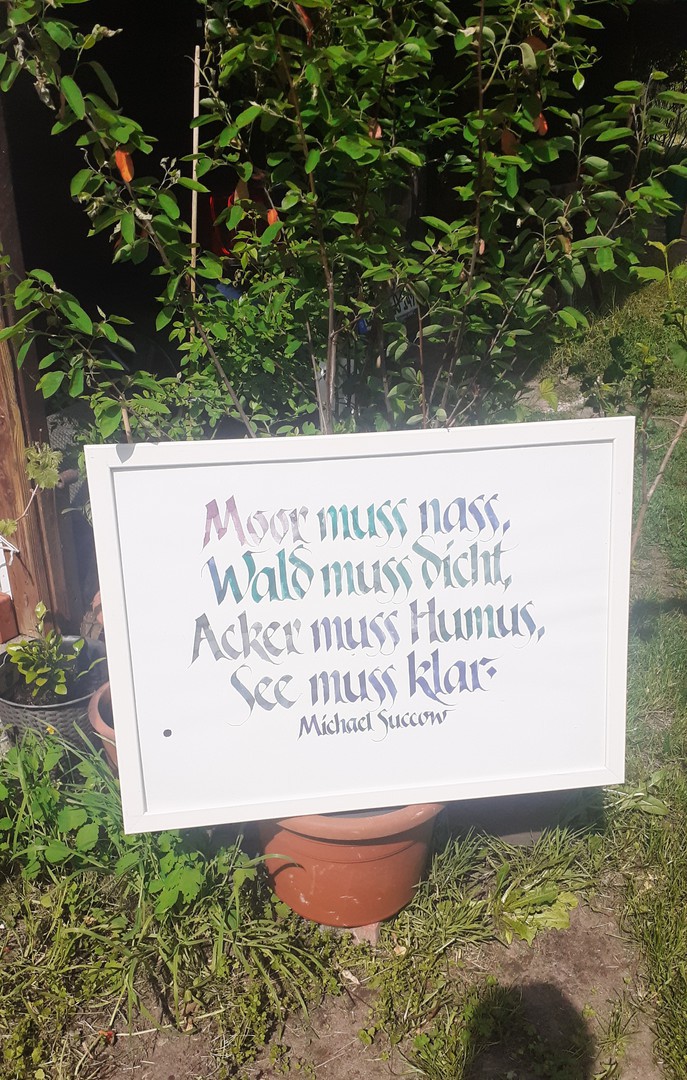 Moor muss nass,
Wald muss dicht,
Acker muss Humus,
See muss klar.
Michael Succow